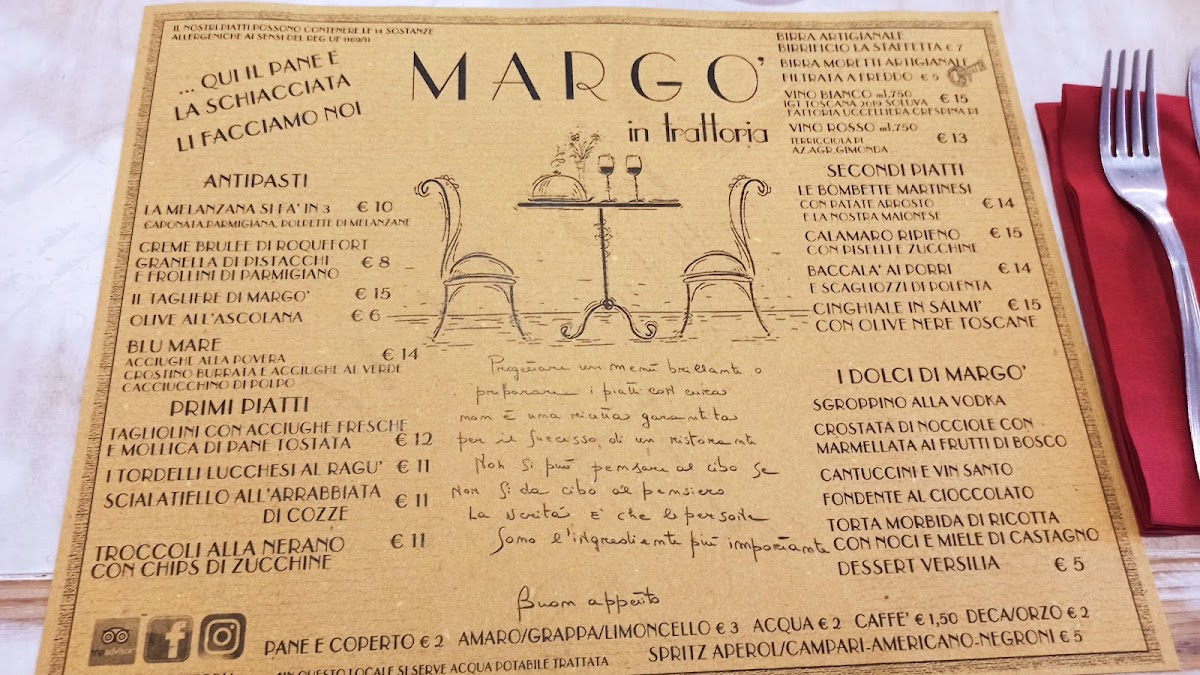 IL NOSTRI PIATTI POSSONO CONTENERE LE 14 SOSTANZE
ALLERGENICHE AI SENSI DEL REG UE 1169/11
... QUI IL PANE E
LA SCHIACCIATA
LI FACCIAMO NOI
MARGO'
in trattoria
BIRRA ARTIGIANALE
BIRRIFICIO LA STAFFETTA € 7
BIRRA MORETTI ARTIGIANALE
FILTRATA A FREDDO € 5
VINO BIANCO ml,750 € 15
IGT TOSCANA 2019 SOLUVA
FATTORIA UCCELLIERA CRESPINA PI
VINO ROSSO ml,750 € 13
TERRICCIOLA PI
AZ.AGR.GIMONDA
ANTIPASTI
LA MELANZANA SI FA' IN 3 € 10
CAPONATA,PARMIGIANA, POLPETTE DI MELANZANE
CREME BRULEE DI ROQUEFORT
GRANELLA DI PISTACCHI € 8
E FROLLINI DI PARMIGIANO
IL TAGLIERE DI MARGO' € 15
OLIVE ALL'ASCOLANA € 6
BLU MARE € 14
ACCIUGHE ALLA POVERA
CROSTINO BURRATA E ACCIUGHE AL VERDE
CACCIUCCHINO DI POLPO
PRIMI PIATTI
TAGLIOLINI CON ACCIUGHE FRESCHE
E MOLLICA DI PANE TOSTATA € 12
I TORDELLI LUCCHESI AL RAGU' € 11
SCIALATIELLO ALL'ARRABBIATA € 11
DI COZZE
TROCCOLI ALLA NERANO € 11
CON CHIPS DI ZUCCHINE
SECONDI PIATTI
LE BOMBETTE MARTINESI
CON PATATE ARROSTO € 14
E LA NOSTRA MAIONESE
CALAMARO RIPIENO € 15
CON PISELLI E ZUCCHINE
BACCALA' AI PORRI € 14
E SCAGLIOZZI DI POLENTA
CINGHIALE IN SALMI' € 15
CON OLIVE NERE TOSCANE
I DOLCI DI MARGO'
SGROPPINO ALLA VODKA
CROSTATA DI NOCCIOLE CON
MARMELLATA AI FRUTTI DI BOSCO
CANTUCCINI E VIN SANTO
FONDENTE AL CIOCCOLATO
TORTA MORBIDA DI RICOTTA
CON NOCI E MIELE DI CASTAGNO
DESSERT VERSILIA € 5
Progettare un menù brillante o
preparare i piatti con cura
non è una ricetta garantita
per il successo di un ristorante
Non si può pensare al cibo se
Non si da cibo al pensiero
La verità è che le persone
Sono l'ingrediente più importante
Buon appetito
tripadvisor
PANE E COPERTO € 2 AMARO/GRAPPA/LIMONCELLO € 3 ACQUA € 2 CAFFE' € 1,50 DECA/ORZO € 2
SPRITZ APEROL/CAMPARI-AMERICANO-NEGRONI € 5
IN QUESTO LOCALE SI SERVE ACQUA POTABILE TRATTATA